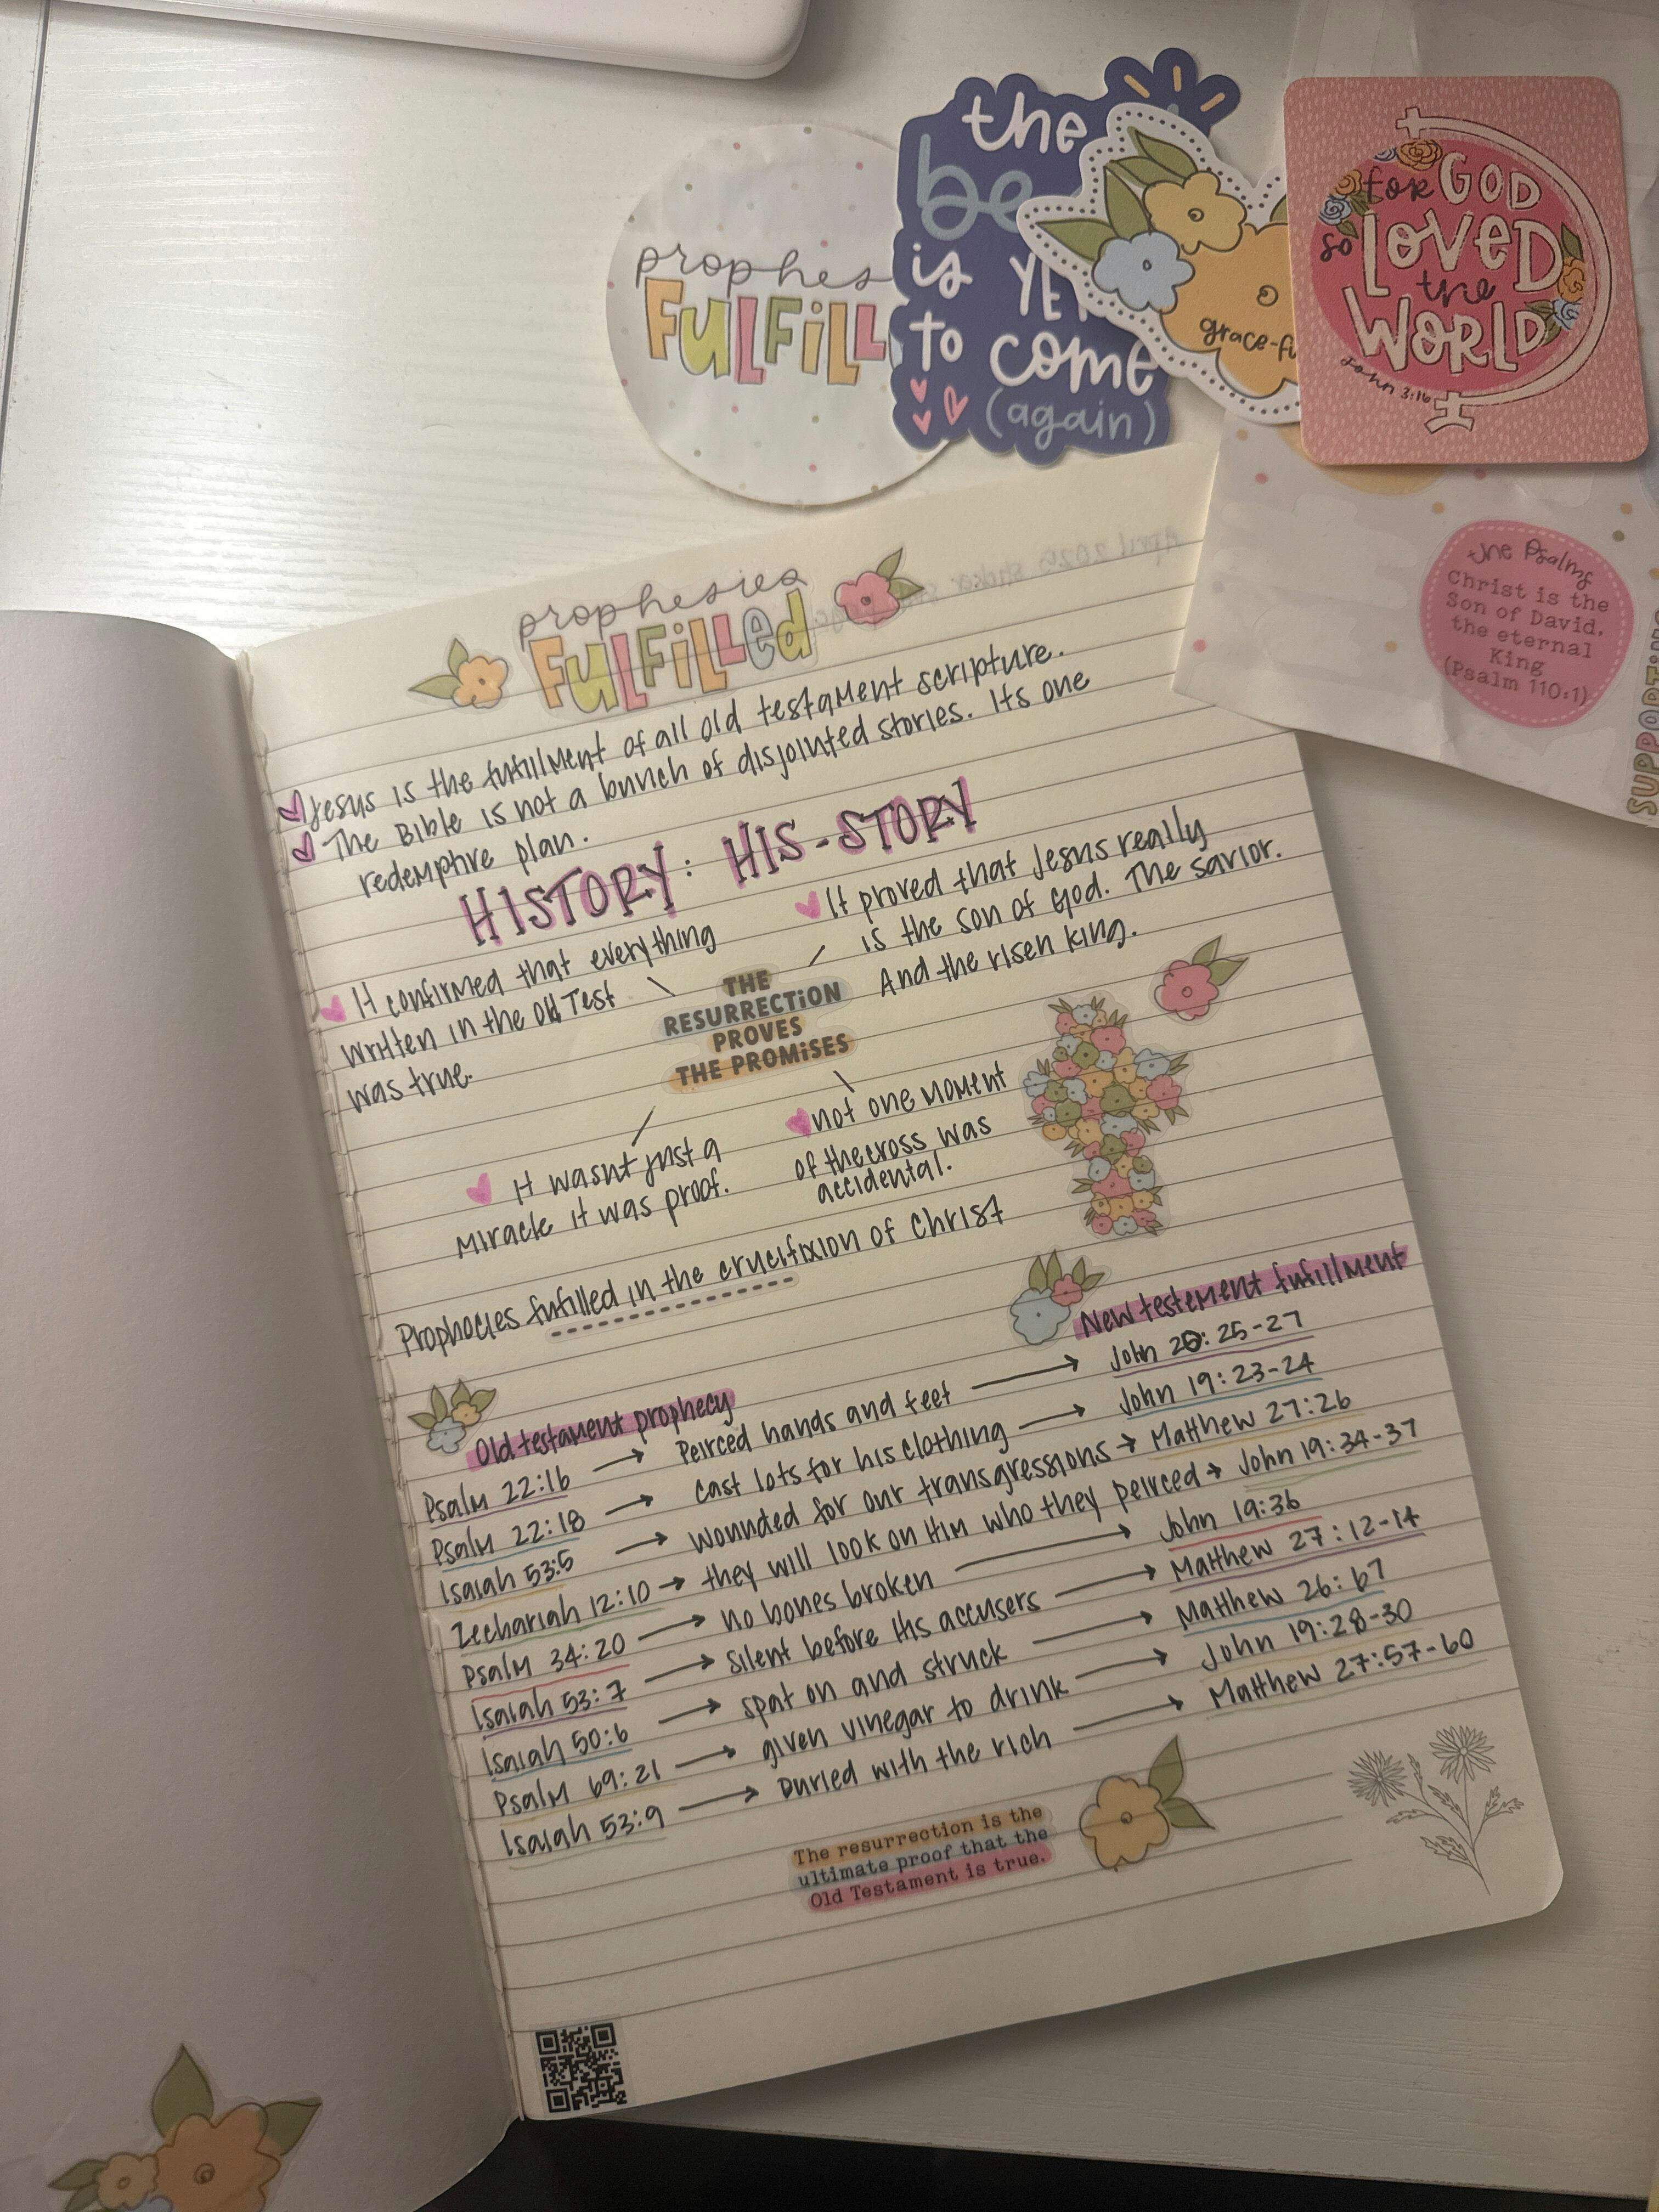 prophes
FULFILL
the
be
is YE
to come
(again)
grace-fu
for GOD
so LOVED
the
WORLD
John 3:16
the Psalms
Christ is the
Son of David,
the eternal
King
(Psalm 110:1)
SUPPORTING
April 2025 sticker
prophesies
FULFILLED
Jesus is the fufillment of all old testament scripture.
The Bible is not a bunch of disjointed stories. Its one
redemptive plan.
HISTORY: HIS-STORY
It confirmed that everything
written in the Old Test
was true.
It proved that Jesus really
is the son of God. The savior.
And the risen king.
THE
RESURRECTION
PROVES
THE PROMISES
It wasnt just a
miracle it was proof.
not one moment
of the cross was
accidental.
Prophocies fufilled in the crucifixion of Christ
Old testament prophecy
New testement fufillment
Psalm 22:16 → Peirced hands and feet → John 20:25-27
Psalm 22:18 → cast lots for his clothing → John 19:23-24
Isaiah 53:5 → wounded for our transgressions → Matthew 27:26
Zechariah 12:10 → they will look on Him who they peirced → John 19:34-37
Psalm 34:20 → no bones broken → John 19:36
Isaiah 53:7 → silent before His accusers → Matthew 27:12-14
Isaiah 50:6 → spat on and struck → Matthew 26:67
Psalm 69:21 → given vinegar to drink → John 19:28-30
Isaiah 53:9 → Buried with the rich → Matthew 27:57-60
The resurrection is the
ultimate proof that the
Old Testament is true.